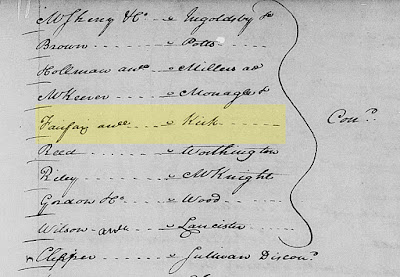 McSherry &c. v Ingoldsby &
Brown v Potts
Hollman awe. v Millers ad
McKeever v Monagle &
Fairfax awe. v Kirk
Reed v Worthington
Con.d.
Riley v McKnight
Gordon &c. v Wood
Wilson awe v Lancister
Clipper v Sullivan Discon.d